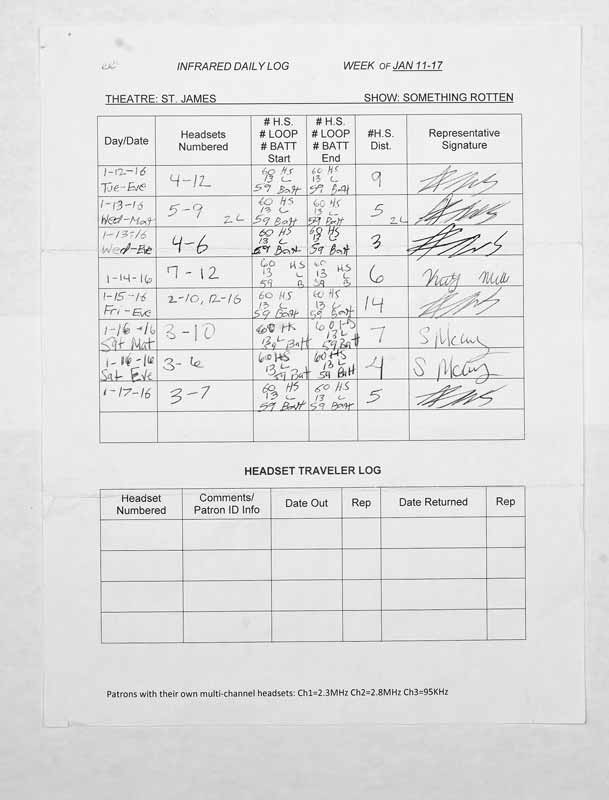 INFRARED DAILY LOG WEEK OF JAN 11-17
THEATRE: ST. JAMES SHOW: SOMETHING ROTTEN
Day/Date Headsets Numbered # H.S. # LOOP # BATT Start # H.S. # LOOP # BATT End #H.S. Dist. Representative Signature
1-12-16 Tue-Eve 4-12 60 HS 13 L 59 Batt 60 HS 13 L 59 Batt 9
1-13-16 Wed-Mat 5-9 2L 60 HS 13 L 59 Batt 60 HS 13 L 59 Batt 5 2L
1-13-16 Wed-Eve 4-6 60 HS 13 L 59 Batt 60 HS 13 L 59 Batt 3
1-14-16 7-12 60 HS 13 L 59 B 60 HS 13 L 59 B 6
1-15-16 Fri-Eve 2-10, 12-16 60 HS 13 L 59 Batt 60 HS 13 L 59 Batt 14
1-16-16 Sat Mat 3-10 60 HS 13 L 59 Batt 60 HS 13 L 59 Batt 7
1-16-16 Sat Eve 3-6 60 HS 13 L 59 Batt 60 HS 13 L 59 Batt 4
1-17-16 3-7 60 HS 13 L 59 Batt 60 HS 13 L 59 Batt 5
HEADSET TRAVELER LOG
Headset Numbered Comments/ Patron ID Info Date Out Rep Date Returned Rep
Patrons with their own multi-channel headsets: Ch1=2.3MHz Ch2=2.8MHz Ch3=95KHz